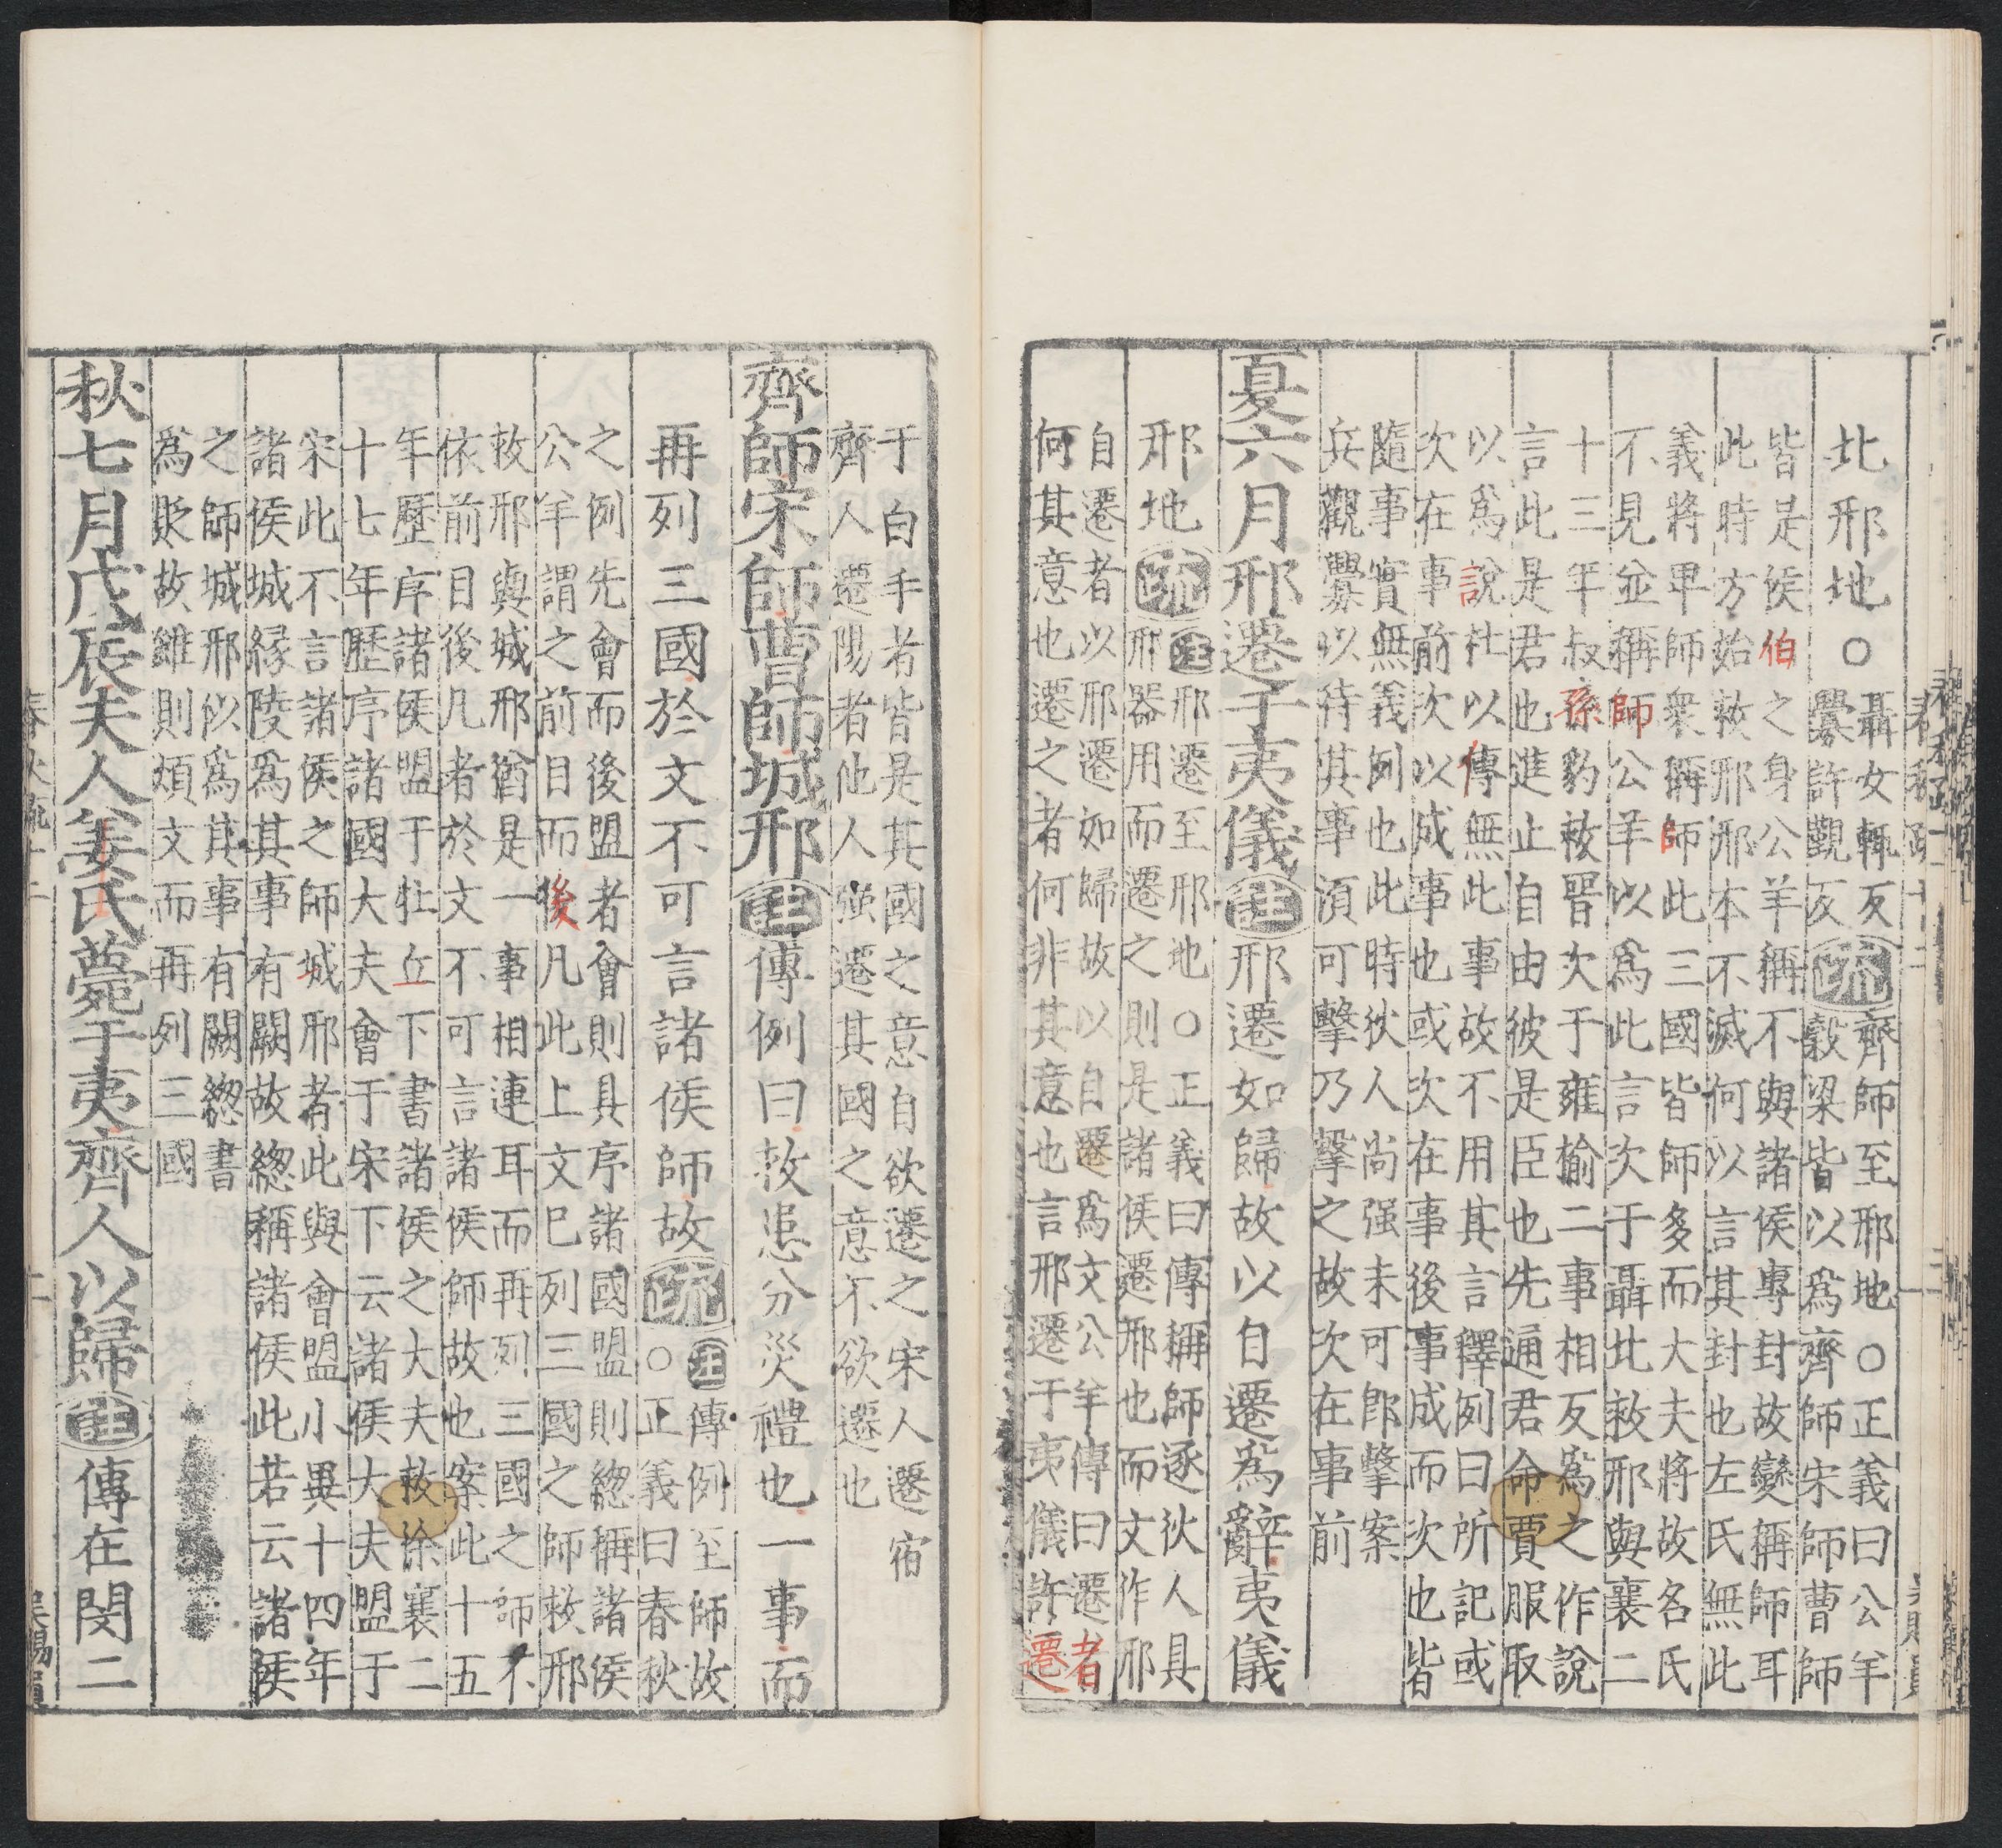 北邢地○聶女輒反
釁許覲反疏齊師至邢地○正義曰公羊
穀梁皆以爲齊師宋師曹師
皆是侯伯之身公羊稱不與諸侯專封故變稱師耳
此時方始救邢邢本不滅何以言其封也左氏無此
義將卑師衆稱師此三國皆師多而大夫將故名氏
不見並稱師公羊以爲此言次于聶北救邢與襄二
十三年叔孫豹救晉次于雍榆二事相反爲之作說
言此是君也進止自由彼是臣也先通君命賈服取
以爲說杜以傳無此事故不用其言釋例曰所記或
次在事前次以成事也或次在事後事成而次也皆
隨事實無義例也此時狄人尚强未可卽擊案
兵觀釁以待其事須可擊乃擊之故次在事前
夏六月邢遷于夷儀註邢遷如歸故以自遷爲辭夷儀
邢地疏註邢遷至邢地○正義曰傳稱師逐狄人具
邢器用而遷之則是諸侯遷邢也而文作邢
自遷者以邢遷如歸故以自遷爲文公羊傳曰遷者
何其意也遷之者何非其意也言邢遷于夷儀許遷
于白手者皆是其國之意自欲遷之宋人遷宿
齊人遷陽者他人强遷其國之意不欲遷也
齊師宋師曹師城邢註傳例曰救患分災禮也一事而
再列三國於文不可言諸侯師故疏註傳例至師故
○正義曰春秋
之例先會而後盟者會則具序諸國盟則總稱諸侯
公羊謂之前目而後凡此上文已列三國之師救邢
救邢與城邢猶是一事相連耳而再列三國之師不
依前目後凡者於文不可言諸侯師故也案此十五
年歷序諸侯盟于牡丘下書諸侯之大夫救徐襄二
十七年歷序諸國大夫會于宋下云諸侯大夫盟于
宋此不言諸侯之師城邢者此與會盟小異十四年
諸侯城緣陵爲其事有闕故總稱諸侯此若云諸侯
之師城邢似爲其事有闕總書
爲貶故雖則煩文而再列三國
秋七月戊辰夫人姜氏薨于夷齊人以歸註傳在閔二